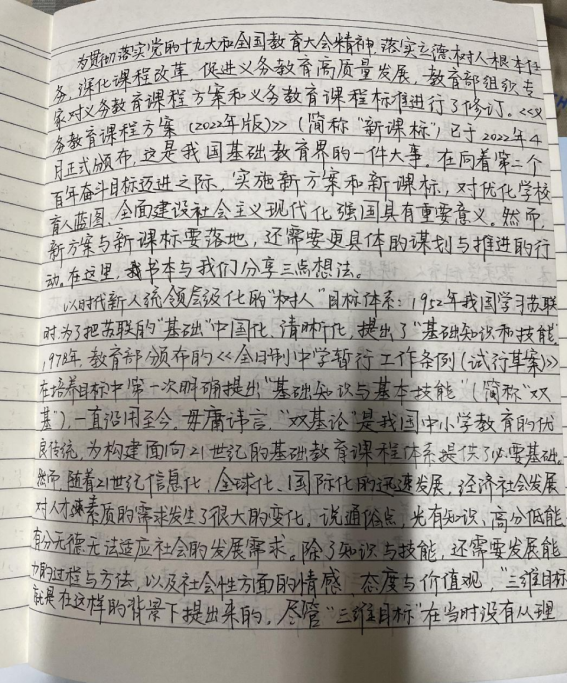 为贯彻落实党的十九大和全国教育大会精神,落实立德树人根本任
务,深化课程改革,促进义务教育高质量发展,教育部组织专
家对义务教育课程方案和义务教育课程标准进行了修订。《义
务教育课程方案(2022年版)》(简称"新课标")已于2022年4
月正式颁布,这是我国基础教育界的一件大事。在向着第二个
百年奋斗目标迈进之际,实施新方案和新课标,对优化学校
育人蓝图、全面建设社会主义现代化强国具有重要意义。然而,
新方案与新课标要落地,还需要更具体的谋划与推进的行
动。在这里,书本与我们分享三点想法。
以时代新人统领层级化的"树人"目标体系:1952年我国学习苏联
时,为了把苏联的"基础"中国化、清晰化,提出了"基础知识和技能
1978年,教育部颁布的《全日制中学暂行工作条例(试行草案)》
在培养目标中第一次明确提出"基础知识与基本技能"(简称"双
基"),一直沿用至今。毋庸讳言,"双基论"是我国中小学教育的优
良传统,为构建面向21世纪的基础教育课程体系提供了必要基础。
然而随着21世纪信息化、全球化、国际化的迅速发展,经济社会发展
对人才素质的需求发生了很大的变化,说通俗点,光有知识、高分低能
有分无德无法适应社会的发展需求。除了知识与技能,还需要发展能
力的过程与方法,以及社会性方面的情感、态度与价值观,"三维目标
就是在这样的背景下提出来的,尽管"三维目标"在当时没有从理